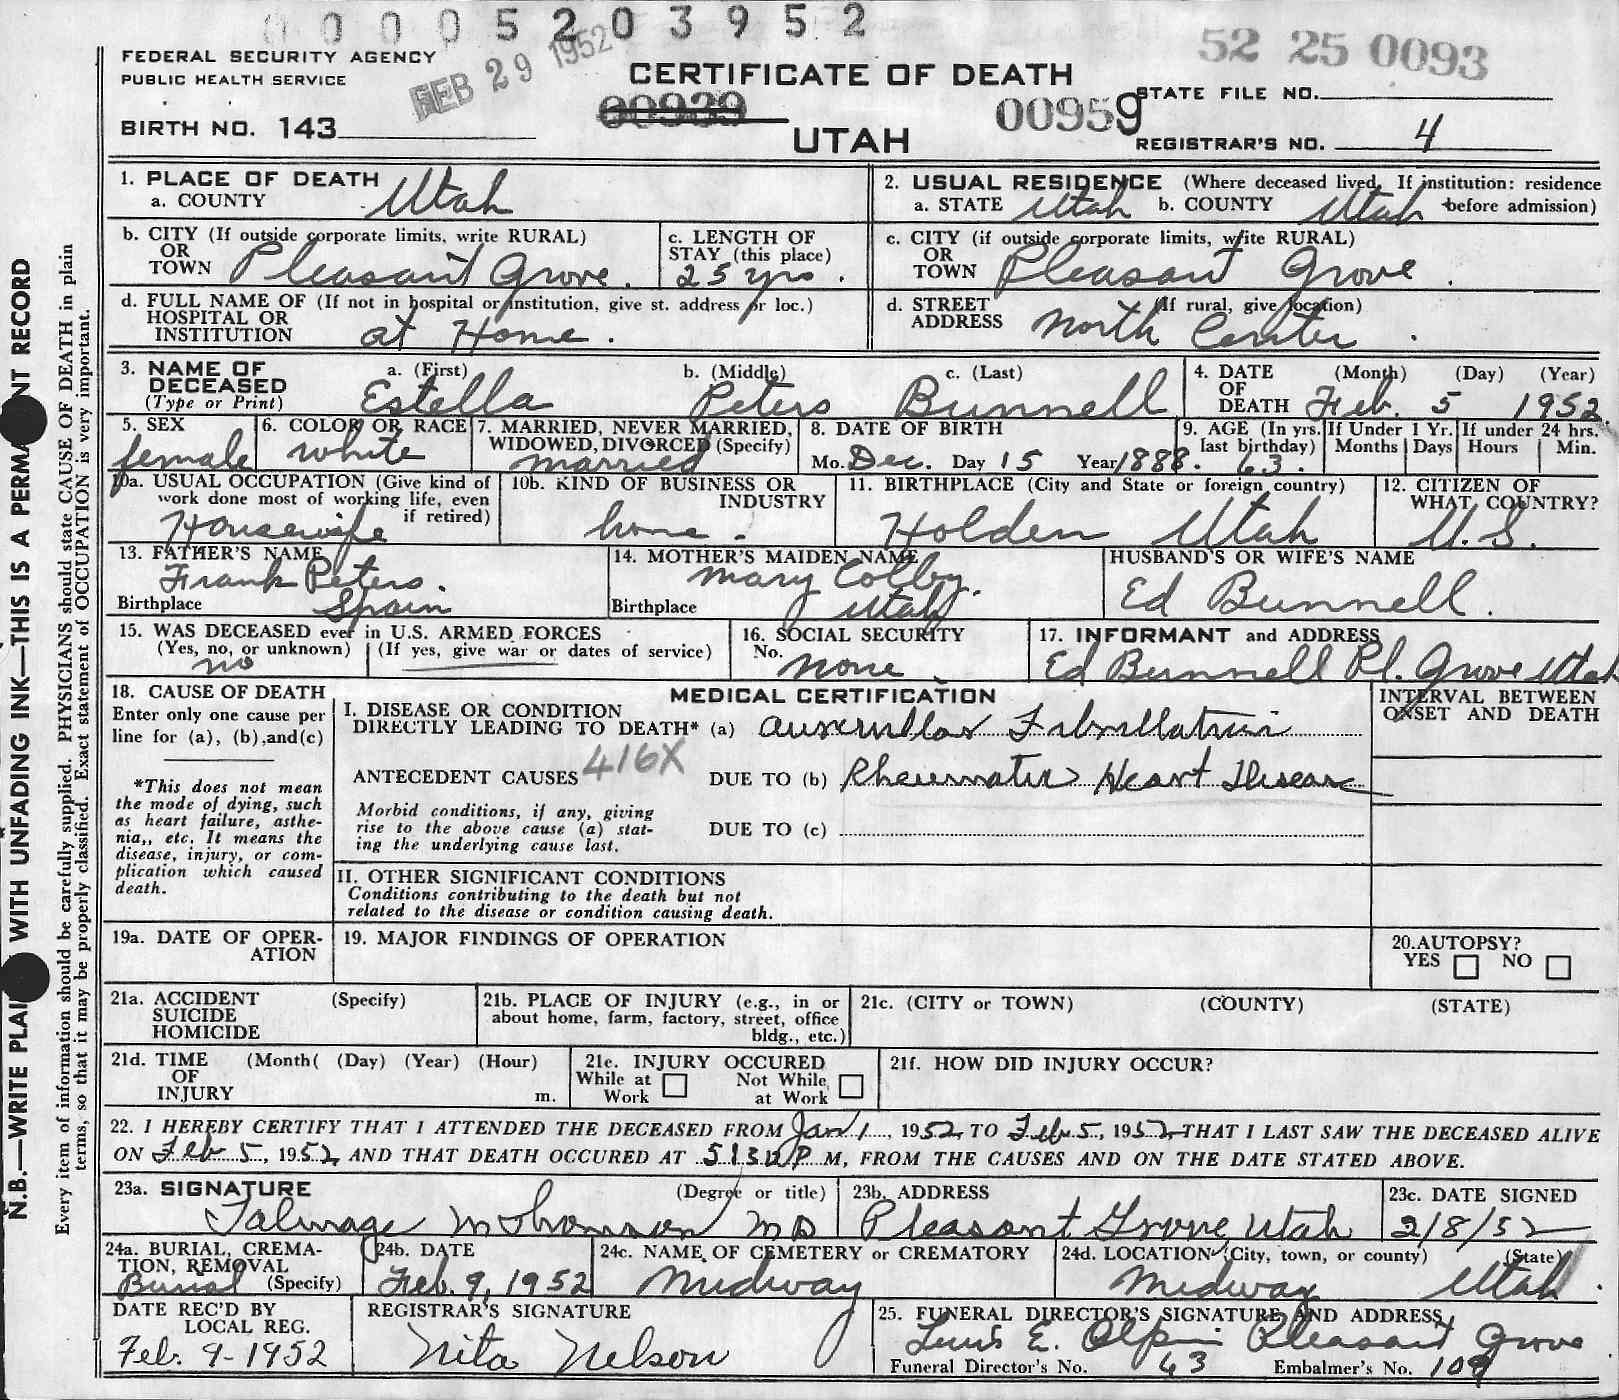 0 0 0 0 5 2 0 3 9 5 2
FEDERAL SECURITY AGENCY
PUBLIC HEALTH SERVICE
FEB 29 1952
CERTIFICATE OF DEATH
52 25 0093
STATE FILE NO.
00939
00959
BIRTH NO. 143
UTAH
REGISTRAR'S NO. 4
1. PLACE OF DEATH
a. COUNTY Utah
2. USUAL RESIDENCE (Where deceased lived. If institution: residence
a. STATE Utah b. COUNTY Utah before admission)
b. CITY (If outside corporate limits, write RURAL)
OR
TOWN Pleasant Grove.
c. LENGTH OF
STAY (this place)
25 yrs.
c. CITY (if outside corporate limits, write RURAL)
OR
TOWN Pleasant Grove.
d. FULL NAME OF (If not in hospital or institution, give st. address or loc.)
HOSPITAL OR
INSTITUTION at Home.
d. STREET (If rural, give location)
ADDRESS North Center.
3. NAME OF
DECEASED
(Type or Print)
a. (First) b. (Middle) c. (Last)
Estella Peters Bunnell
4. DATE (Month) (Day) (Year)
OF
DEATH Feb. 5 1952
5. SEX
female
6. COLOR OR RACE
white
7. MARRIED, NEVER MARRIED,
WIDOWED, DIVORCED (Specify)
married
8. DATE OF BIRTH
Mo. Dec. Day 15 Year 1888.
9. AGE (In yrs.
last birthday)
63.
If Under 1 Yr.
Months Days
If under 24 hrs.
Hours Min.
10a. USUAL OCCUPATION (Give kind of
work done most of working life, even
if retired)
Housewife
10b. KIND OF BUSINESS OR
INDUSTRY
home.
11. BIRTHPLACE (City and State or foreign country)
Holden Utah
12. CITIZEN OF
WHAT COUNTRY?
U.S.
13. FATHER'S NAME
Frank Peters.
Birthplace Spain
14. MOTHER'S MAIDEN NAME
Mary Colby.
Birthplace Utah
HUSBAND'S OR WIFE'S NAME
Ed Bunnell.
15. WAS DECEASED ever in U.S. ARMED FORCES
(Yes, no, or unknown) (If yes, give war or dates of service)
no
16. SOCIAL SECURITY
No. none
17. INFORMANT and ADDRESS
Ed Bunnell Pl. Grove Utah
18. CAUSE OF DEATH
Enter only one cause per
line for (a), (b),and(c)
*This does not mean
the mode of dying, such
as heart failure, asthe-
nia,, etc. It means the
disease, injury, or com-
plication which caused
death.
MEDICAL CERTIFICATION
INTERVAL BETWEEN
ONSET AND DEATH
I. DISEASE OR CONDITION
DIRECTLY LEADING TO DEATH* (a) Fibrillation
ANTECEDENT CAUSES 416X DUE TO (b) Rheumatic Heart Disease
Morbid conditions, if any, giving
rise to the above cause (a) stat-
ing the underlying cause last.
DUE TO (c)
II. OTHER SIGNIFICANT CONDITIONS
Conditions contributing to the death but not
related to the disease or condition causing death.
19a. DATE OF OPER-
ATION
19. MAJOR FINDINGS OF OPERATION
20.AUTOPSY?
YES NO
21a. ACCIDENT (Specify)
SUICIDE
HOMICIDE
21b. PLACE OF INJURY (e.g., in or
about home, farm, factory, street, office
bldg., etc.)
21c. (CITY or TOWN) (COUNTY) (STATE)
21d. TIME (Month( (Day) (Year) (Hour)
OF
INJURY m.
21e. INJURY OCCURED
While at Not While
Work at Work
21f. HOW DID INJURY OCCUR?
22. I HEREBY CERTIFY THAT I ATTENDED THE DECEASED FROM Jan 1, 1952 TO Feb 5, 1952 THAT I LAST SAW THE DECEASED ALIVE
ON Feb 5, 1952 AND THAT DEATH OCCURED AT P M, FROM THE CAUSES AND ON THE DATE STATED ABOVE.
23a. SIGNATURE (Degree or title)
Talmage M Thomson MD
23b. ADDRESS
Pleasant Grove Utah
23c. DATE SIGNED
2/8/52
24a. BURIAL, CREMA-
TION, REMOVAL
Burial (Specify)
24b. DATE
Feb. 9, 1952
24c. NAME OF CEMETERY or CREMATORY
Midway
24d. LOCATION (City, town, or county) (State)
Midway Utah
DATE REC'D BY
LOCAL REG.
Feb. 9-1952
REGISTRAR'S SIGNATURE
Nita Nelson
25. FUNERAL DIRECTOR'S SIGNATURE AND ADDRESS
E. Olpin Pleasant Grove
Funeral Director's No. 43 Embalmer's No. 109
N.B.—WRITE PLAI WITH UNFADING INK—THIS IS A PERMA NT RECORD
Every item of information should be carefully supplied. PHYSICIANS should state CAUSE OF DEATH in plain
terms, so that it may be properly classified. Exact statement of OCCUPATION is very important.